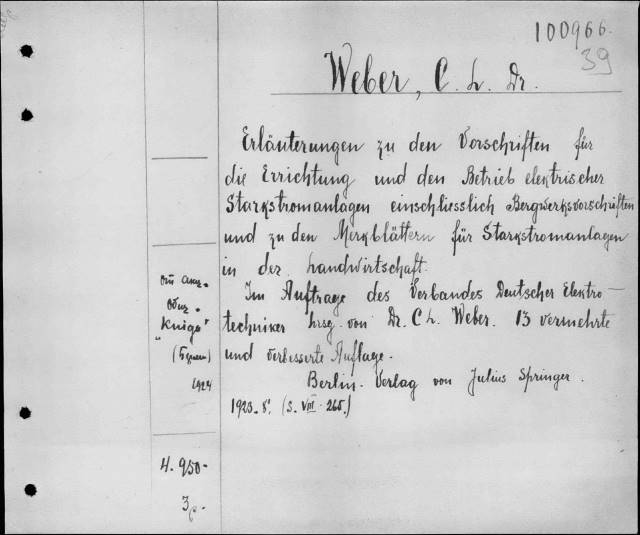 100966.
39
Weber, C. L. Dr.
Erläuterungen zu den Vorschriften für
die Errichtung und den Betrieb elektrischer
Starkstromanlagen einschliesslich Bergwerksvorschriften
und zu den Merkblättern für Starkstromanlagen
in der Landwirtschaft.
Im Auftrage des Verbandes Deutscher Elektro-
techniker hrsg. von Dr. C. L. Weber. 13 vermehrte
und verbesserte Auflage.
Berlin. Verlag von Julius Springer.
1923. 8°. (S. VIII. 265.)
"Книга"
1924
4. 950-